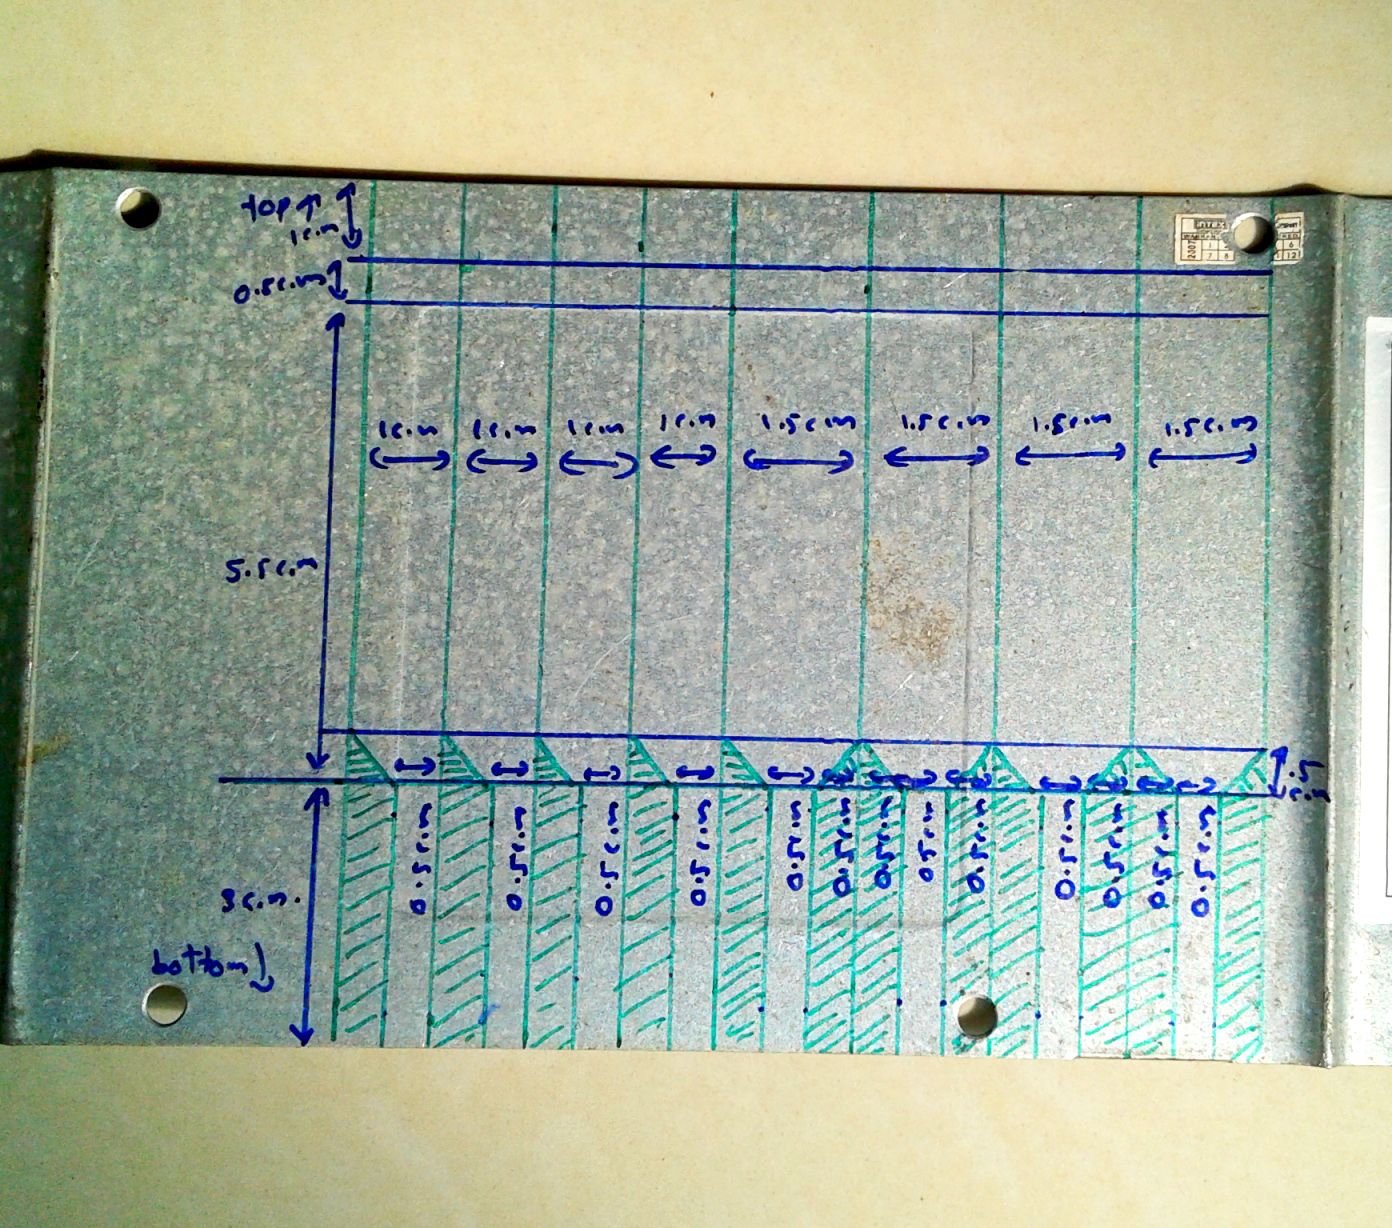 top
1c.m
0.5c.m
1c.m 1c.m 1c.m 1c.m 1.5c.m 1.5c.m 1.5c.m 1.5c.m
5.5c.m
.5
c.m
0.5c.m 0.5c.m 0.5c.m 0.5c.m 0.5c.m 0.5c.m 0.5c.m 0.5c.m 0.5c.m 0.5c.m 0.5c.m 0.5c.m 0.5c.m
3c.m.
bottom